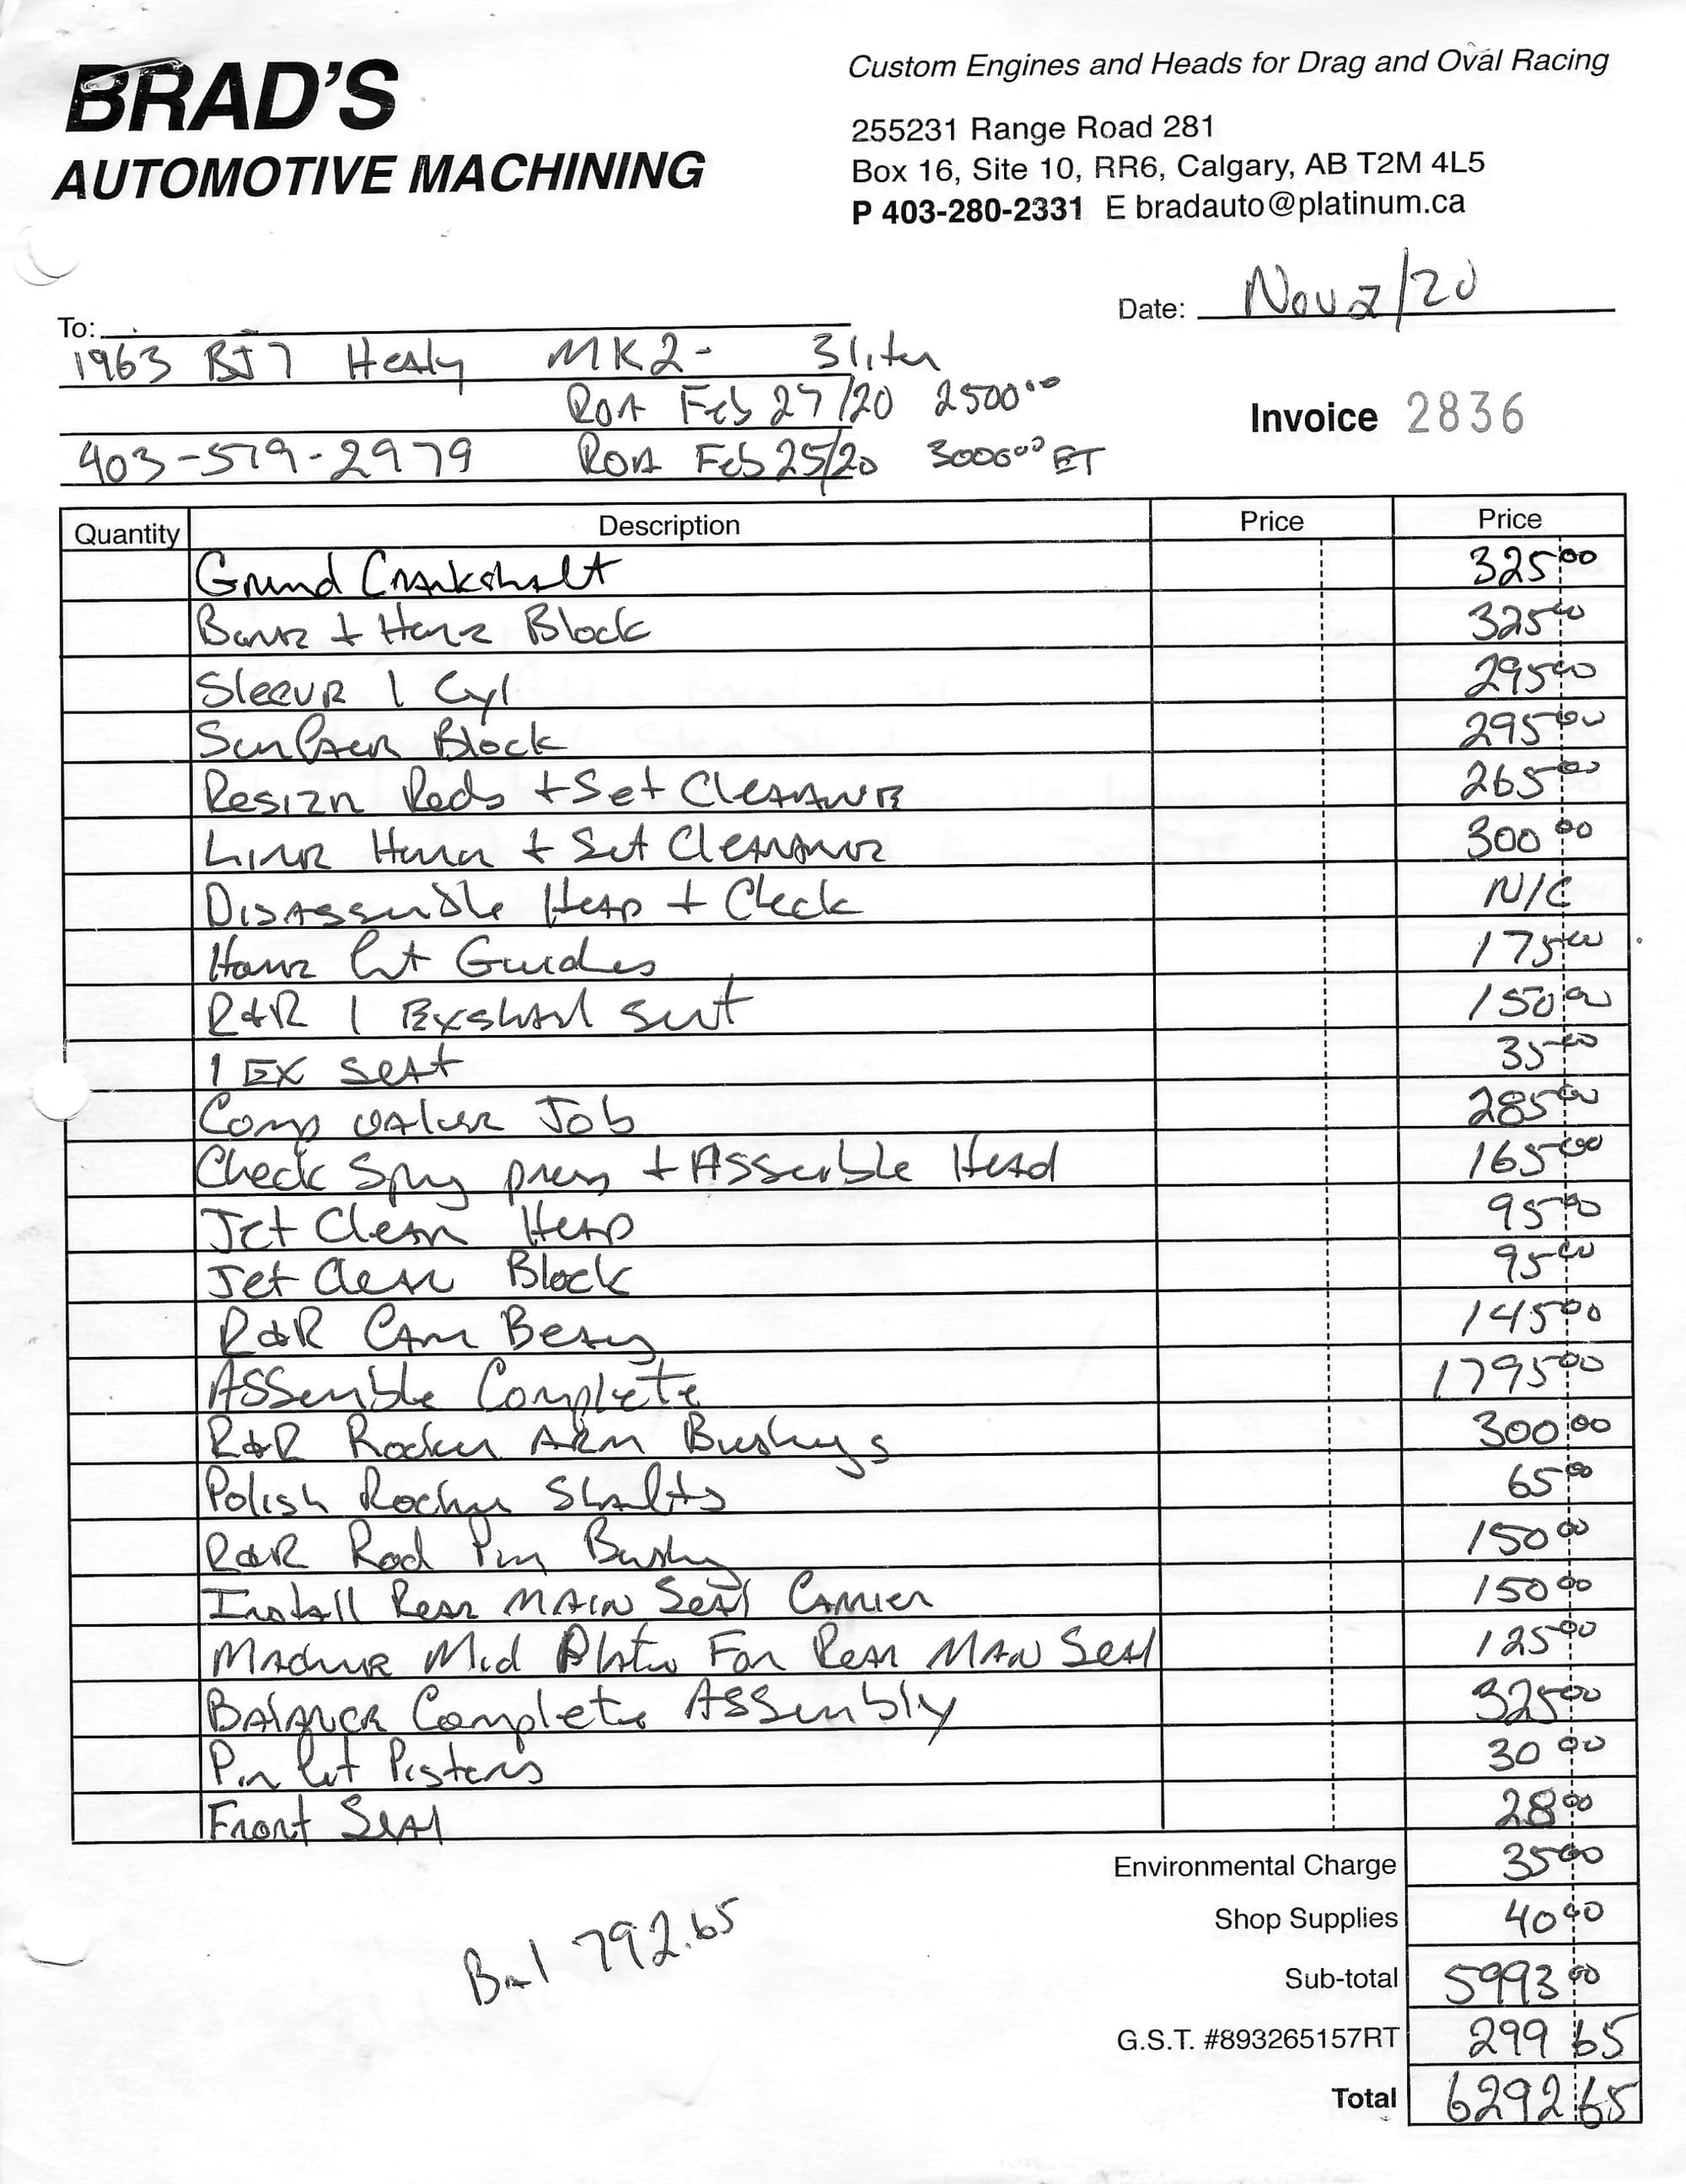 BRAD'S
AUTOMOTIVE MACHINING
Custom Engines and Heads for Drag and Oval Racing
255231 Range Road 281
Box 16, Site 10, RR6, Calgary, AB T2M 4L5
P 403-280-2331 E bradauto@platinum.ca
Date: Nov 2/20
To:
1963 BJ7 Healy MK2 - 3 liter
ROA Feb 27/20 2500.00
403-519-2979 ROA Feb 25/20 3000.00 ET
Invoice 2836
Quantity Description Price Price
Grind Crankshaft 325.00
Bore + Hone Block 325.00
Sleeve 1 Cyl 295.00
Surface Block 295.00
Resize Rods + Set Clearance 265.00
Line Hone + Set Clearance 300.00
Disassemble Head + Check N/C
Hone Fit Guides 175.00
R&R 1 Exshaust Seat 150.00
1 EX Seat 35.00
Comp Valve Job 285.00
Check Spring press + Assemble Head 165.00
Jet Clean Head 95.00
Jet Clean Block 95.00
R&R Cam Bearing 145.00
Assemble Complete 1795.00
R&R Rocker Arm Bushings 300.00
Polish Rocker Shafts 65.00
R&R Rod Pin Bushing 150.00
Install Rear Main Seal Carrier 150.00
Machine Mid Plate For Rear Main Seal 125.00
Balance Complete Assembly 325.00
Pin Fit Pistons 30.00
Front Seal 28.00
Environmental Charge 35.00
Shop Supplies 40.00
Bal 792.65
Sub-total 5993.00
G.S.T. #893265157RT 299 65
Total 6292 65